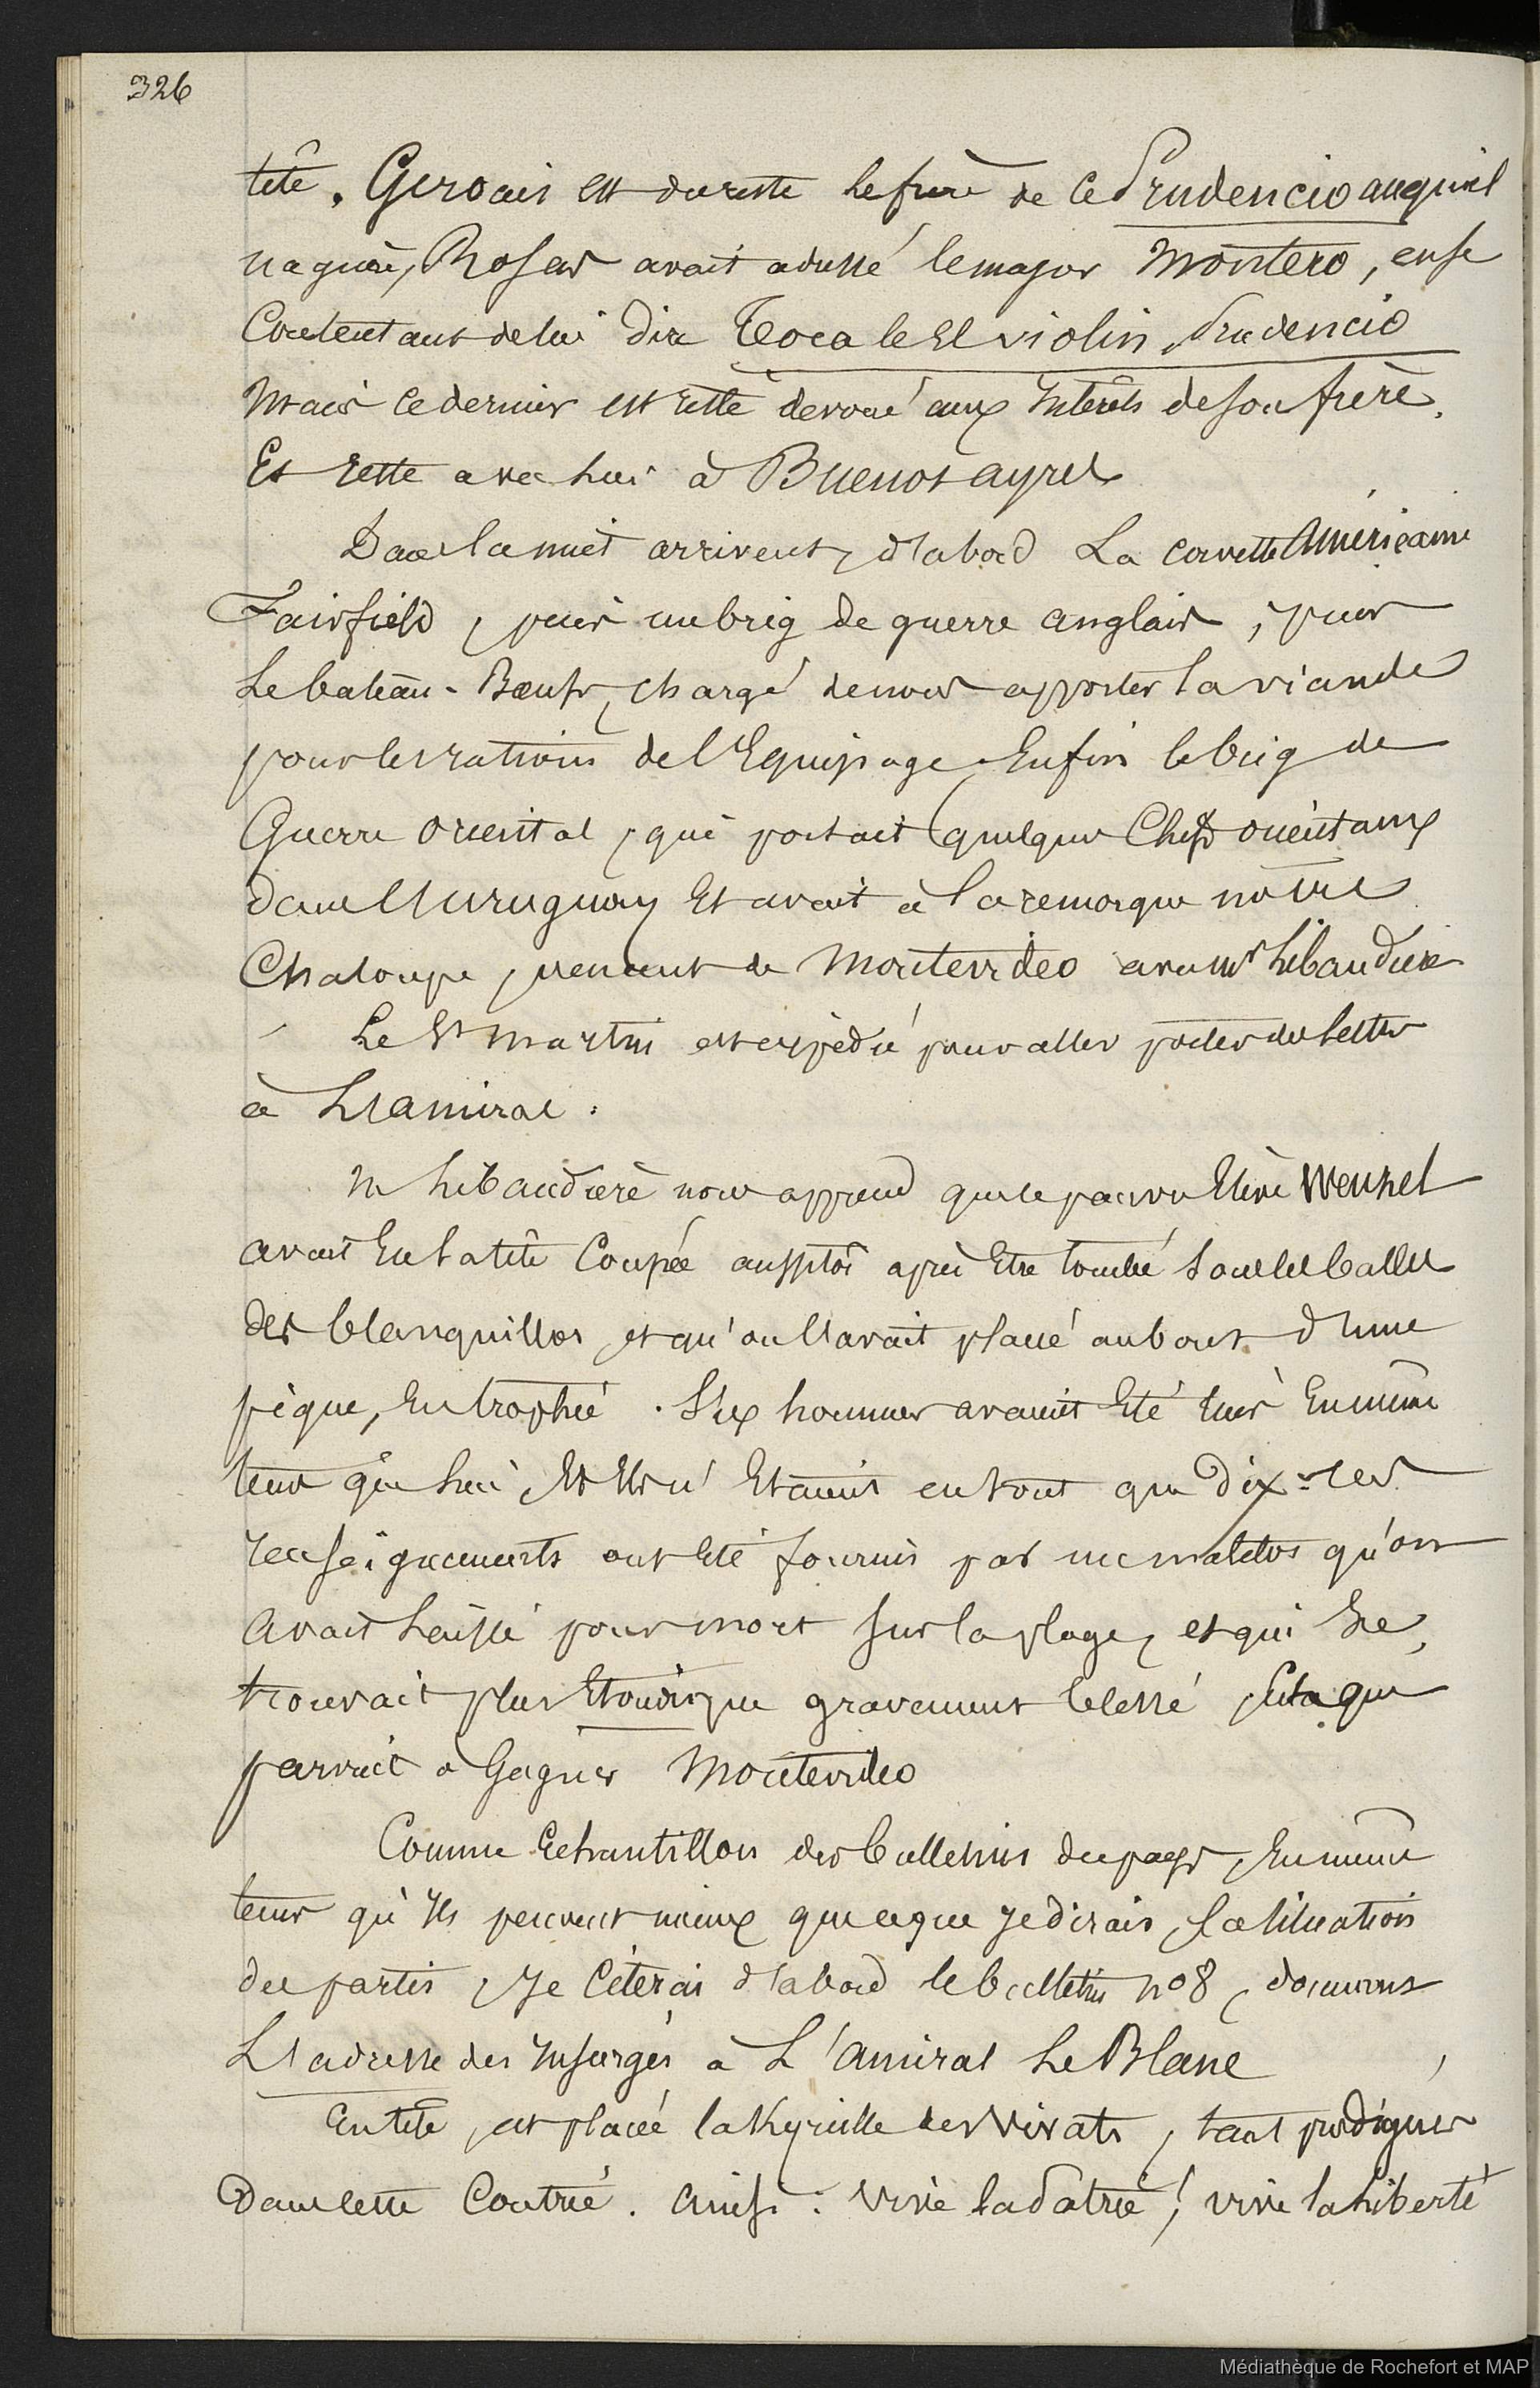 326
tête. Gervais est du reste le frère de ce Prudencio auquiel
naguère, Rosas avait adressé le major Montero, en se
Contentant de lui dire Toca le El violin, Prudencio
Mais ce dernier est resté dévoué aux Interêts de son frère,
Et reste avec lui à Buenos ayres
Dans la nuit arrivent, d'abord La corvette Américaine
Fairfield, puis un brig de guerre anglais, puis
Le bateau-Boeufs, chargé de nous apporter la viande
pour les rations de l'Equipage. Enfin le brig de
Guerre oriental, qui portait quelques Chefs orientaux
dans l'uruguay Et avait à la remorque notre
Chaloupe, venant de Montevideo avec Mr Libaudière
Le St Martin est expédié pour aller porter des lettres
à L'amiral.
M Libaudière nous apprend que le pauvre Elève Wenzel
avait Eu la tête Coupée aussitôt après Etre tombé sous les balles
des blanquillos, et qu'on l'avait placé au bout d'une
pique, En trophée. Six hommes avaient Eté tués En même
tems que lui, Et Ils n'Etaient en tout que dix - ces
renseignements ont Eté fournis par un matelot qu'on
avait Laissé pour mort sur la plage, et qui se
trouvait plus Etourdi que gravement blessé, Celà qui
parvint à Gagner Montevideo
Comme Echantillon des bulletins du pays, En même
tems qu'Ils peuvent mieux que ce que Je dirais, la situation
des partis, Je Citerai d'abord le bulletin no 8, donnant
L'adresse des Insurgés à L'Amiral Le Blanc
En tête, est placée la Kyrielle des Vivats, tant prodigués
Dans cette Contrée. Ainsi : Vive la Patrie ! vive la Liberté
Médiathèque de Rochefort et MAP